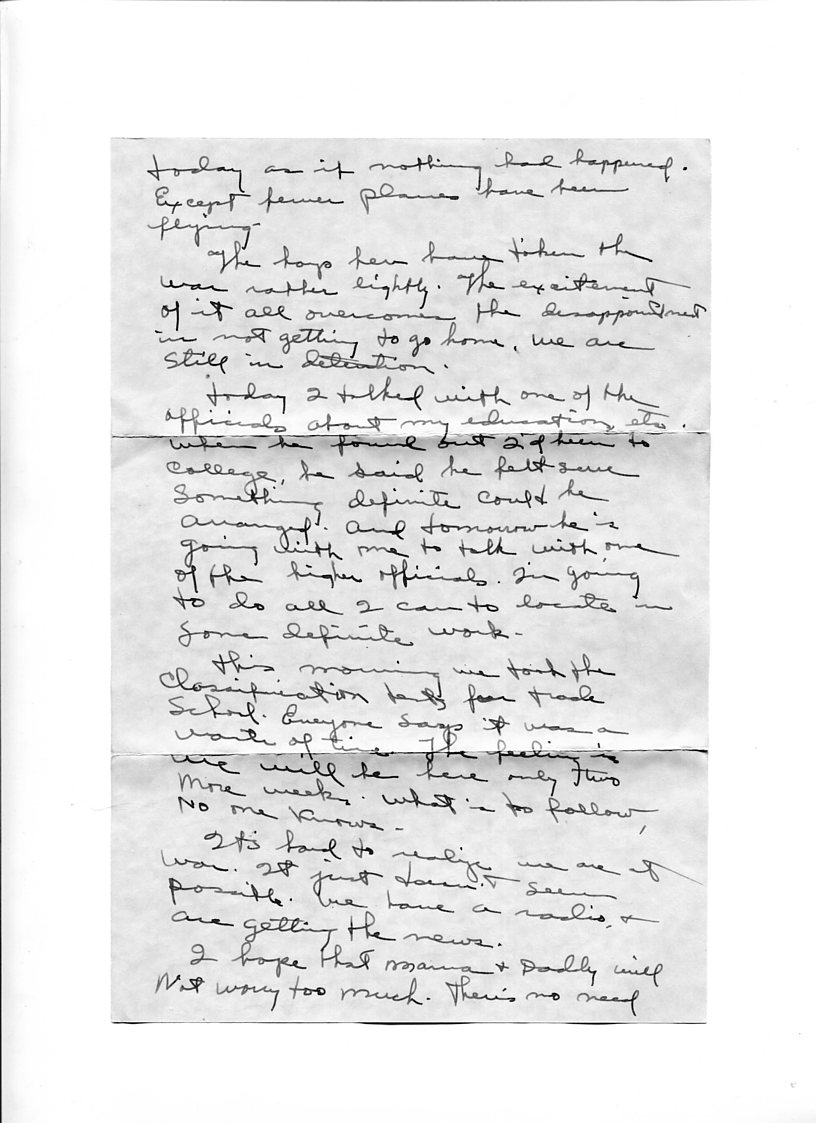 today as if nothing had happened.
Except fewer planes have been
flying.
The boys here have taken the
war rather lightly. The excitement
of it all overcomes the disappointment
in not getting to go home. We are
still in detention.
Today I talked with one of the
officials about my education, etc.
When he found out I'd been to
college, he said he felt sure
something definite could be
arranged. And tomorrow he is
going with me to talk with one
of the higher officials. I'm going
to do all I can to locate in
some definite work.
This morning we took the
Classification tests for trade
School. Everyone says it was a
waste of time. The feeling is
we will be here only two
more weeks. What is to follow,
No one knows.
It's hard to realize we are at
war. It just doesn't seem
possible. We have a radio, &
are getting the news.
I hope that mama & Daddy will
Not worry too much. There's no need